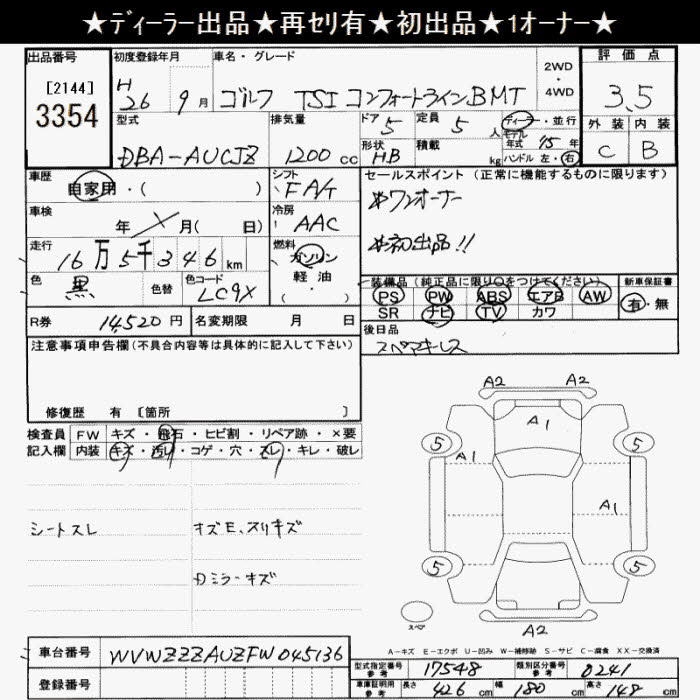 ★ディーラー出品★再セリ有★初出品★1オーナー★
出品番号
[2144]
3354
初度登録年月
H 26 9月
車名・グレード
ゴルフ TSI コンフォートラインBMT
2WD・4WD
評価点
3.5
外装 内装
C B
型式
DBA-AUCJZ
排気量
1200cc
ドア 5
定員 5人
ディーラー・並行
モデル年式 15年
形状 HB
積載 kg
ハンドル 左・右
車歴
自家用・( )
シフト
FA/T
セールスポイント(正常に機能するものに限ります)
※ワンオーナー
※初出品!!
車検
年 月( 日)
冷房
AAC
走行
16万5千346km
燃料
ガソリン
軽油
・( )
色
黒
色替
色コード
LC9X
装備品(純正品に限り○をつけてください)
PS PW ABS エアB AW
SR ナビ TV カワ
新車保証書
有・無
R券 14,520円
名変期限 月 日
後日品
スペアキーレス
注意事項申告欄(不具合内容等は具体的に記入して下さい)
修復歴 有 [箇所 ]
検査員記入欄
FW キズ・飛石・ヒビ割・リペア跡・×要
内装 キズ・汚れ・コゲ・穴・スレ・キレ・破レ
シートスレ
キズE、スリキズ
Dミラーキズ
A2 A2
A1
5 5
A1
A1
5 5
スペア
A2
A-キズ E-エクボ U-凹み W-補修跡 S-サビ C-腐食 XX-交換済
車台番号 WVWZZZAUZFW045136
登録番号
型式指定番号参考 17548
類別区分番号参考 0241
車庫証明用参考 長さ 426cm 幅 180cm 高さ 148cm